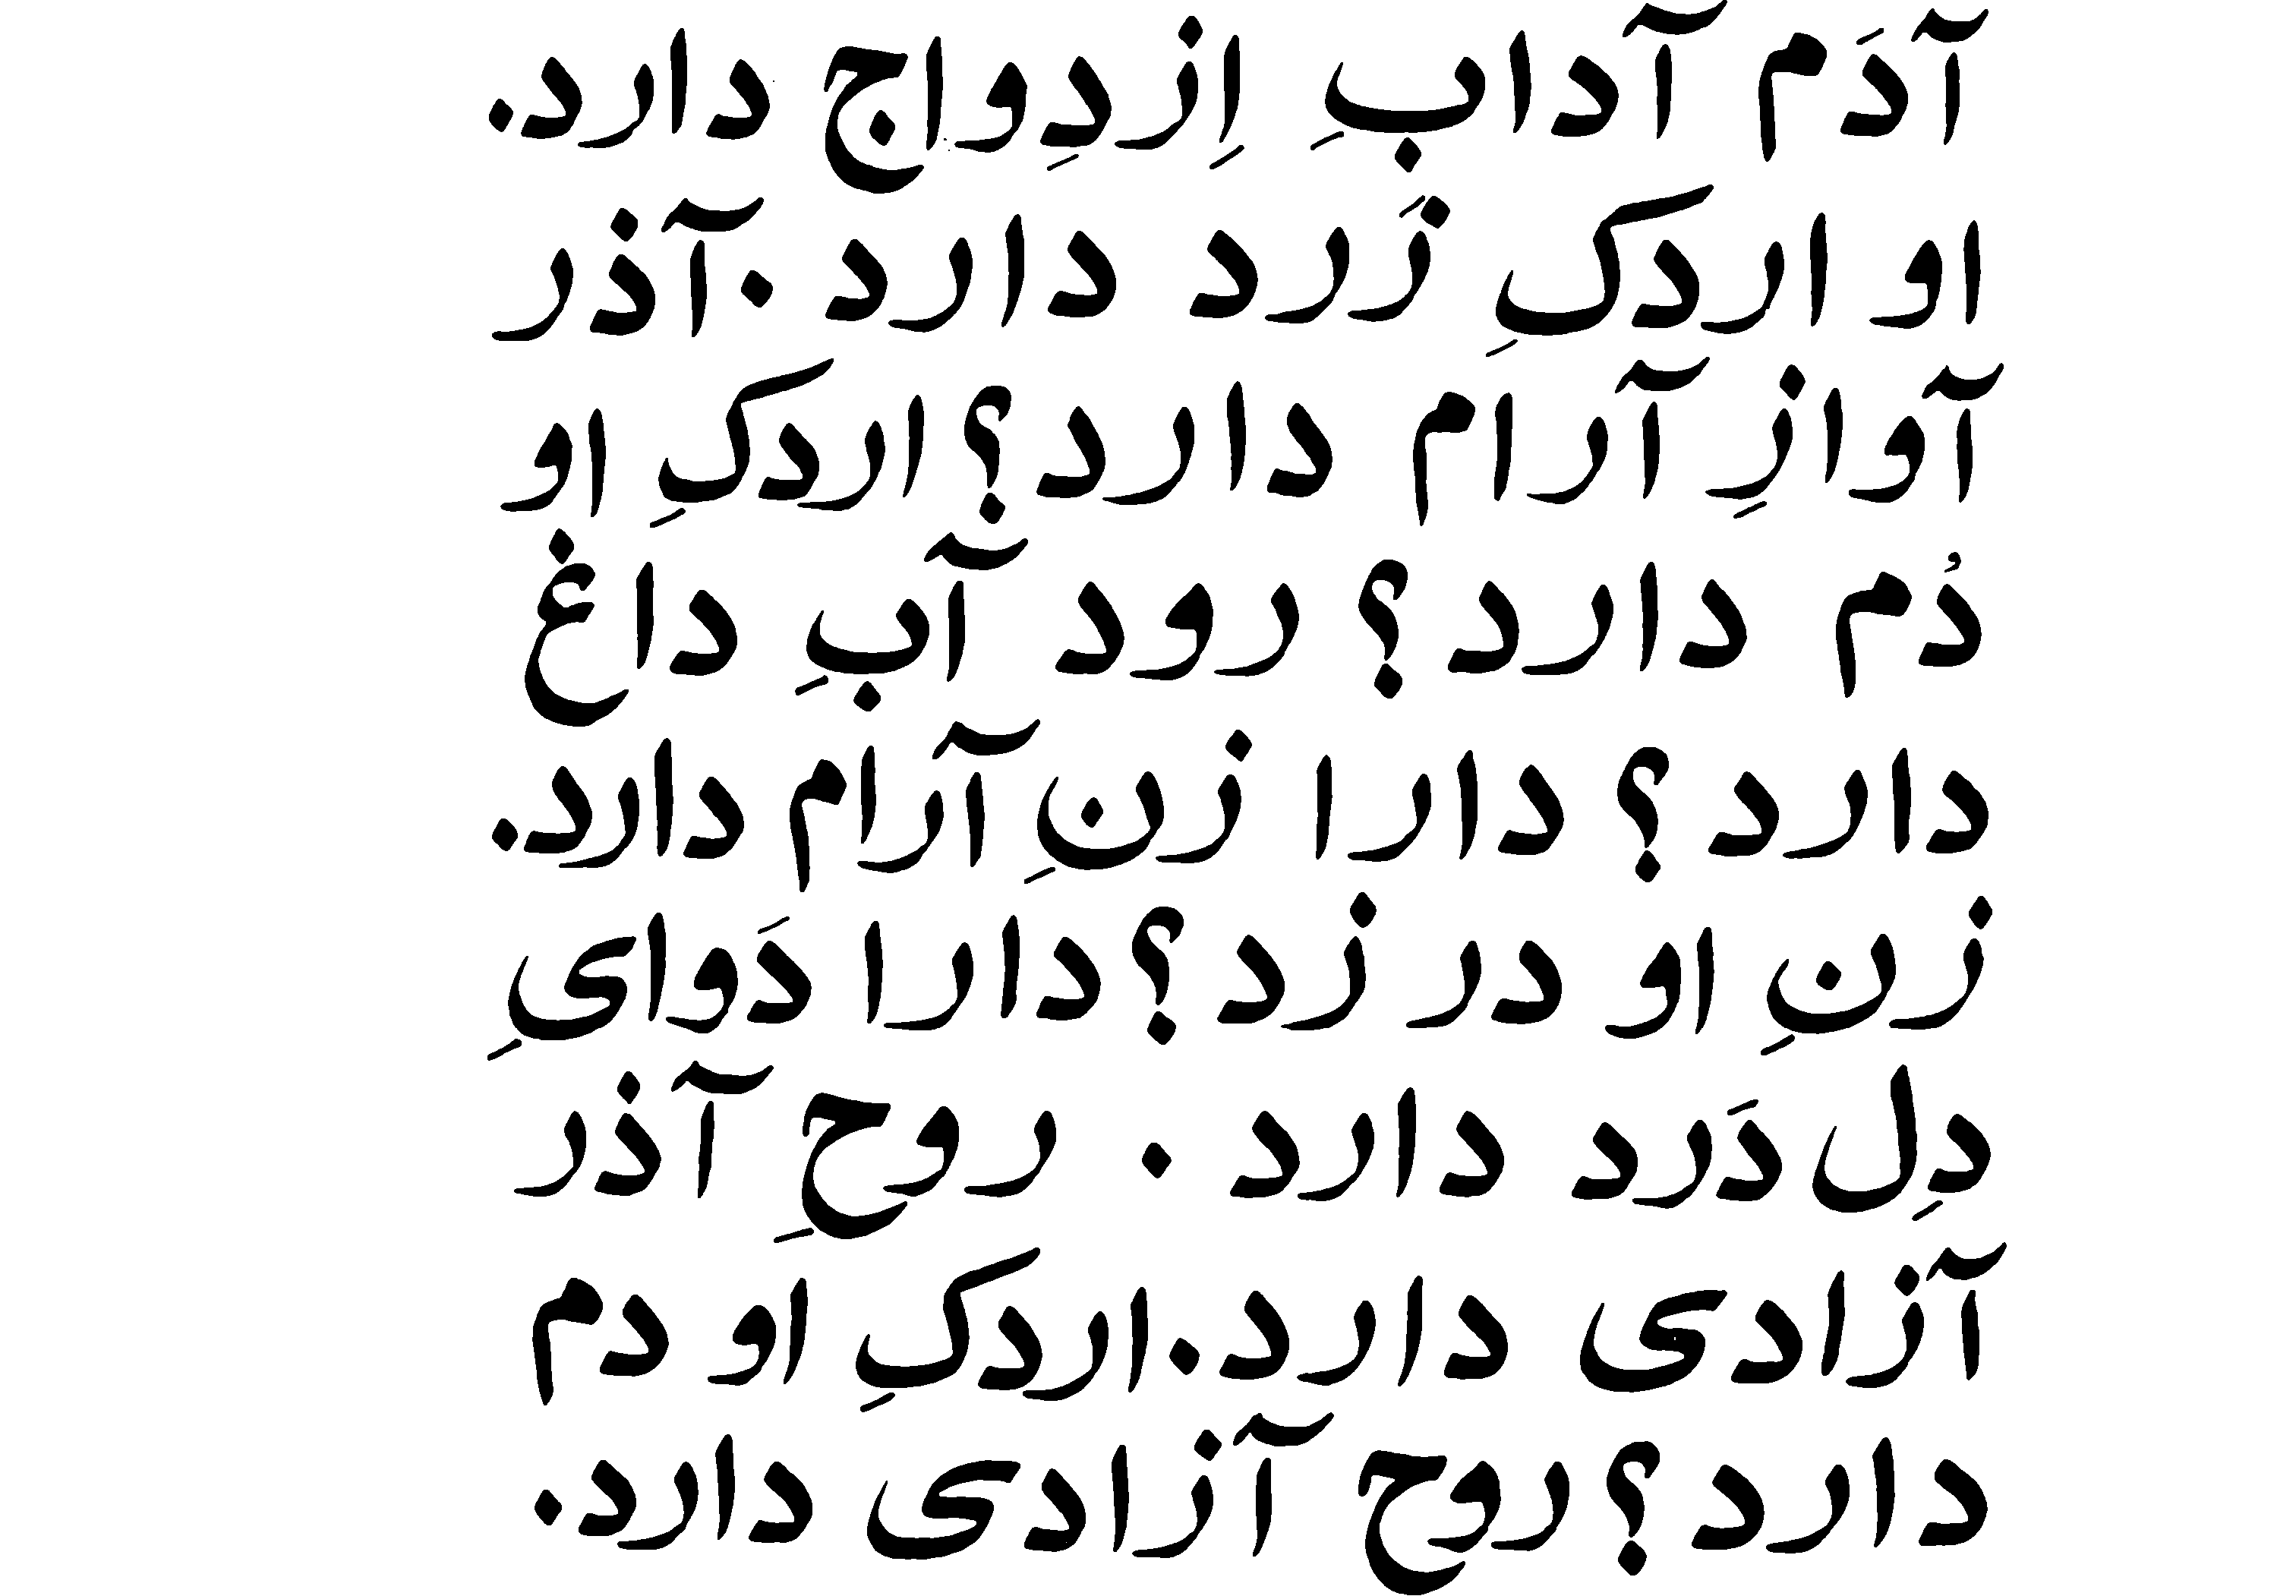 آدَم آدابِ اِزدِواج دارد.
او اردکِ زَرد دارد . آذر
آوازِ آرام دارد؟ اردکِ او
دُم دارد؟ رود آبِ داغ
دارد؟ دارا زنِ آرام دارد.
زنِ او در زد؟ دارا دَوایِ
دِل دَرد دارد . روحِ آذر
آزادی دارد. اردکِ او دم
دارد؟ روح آزادی دارد.